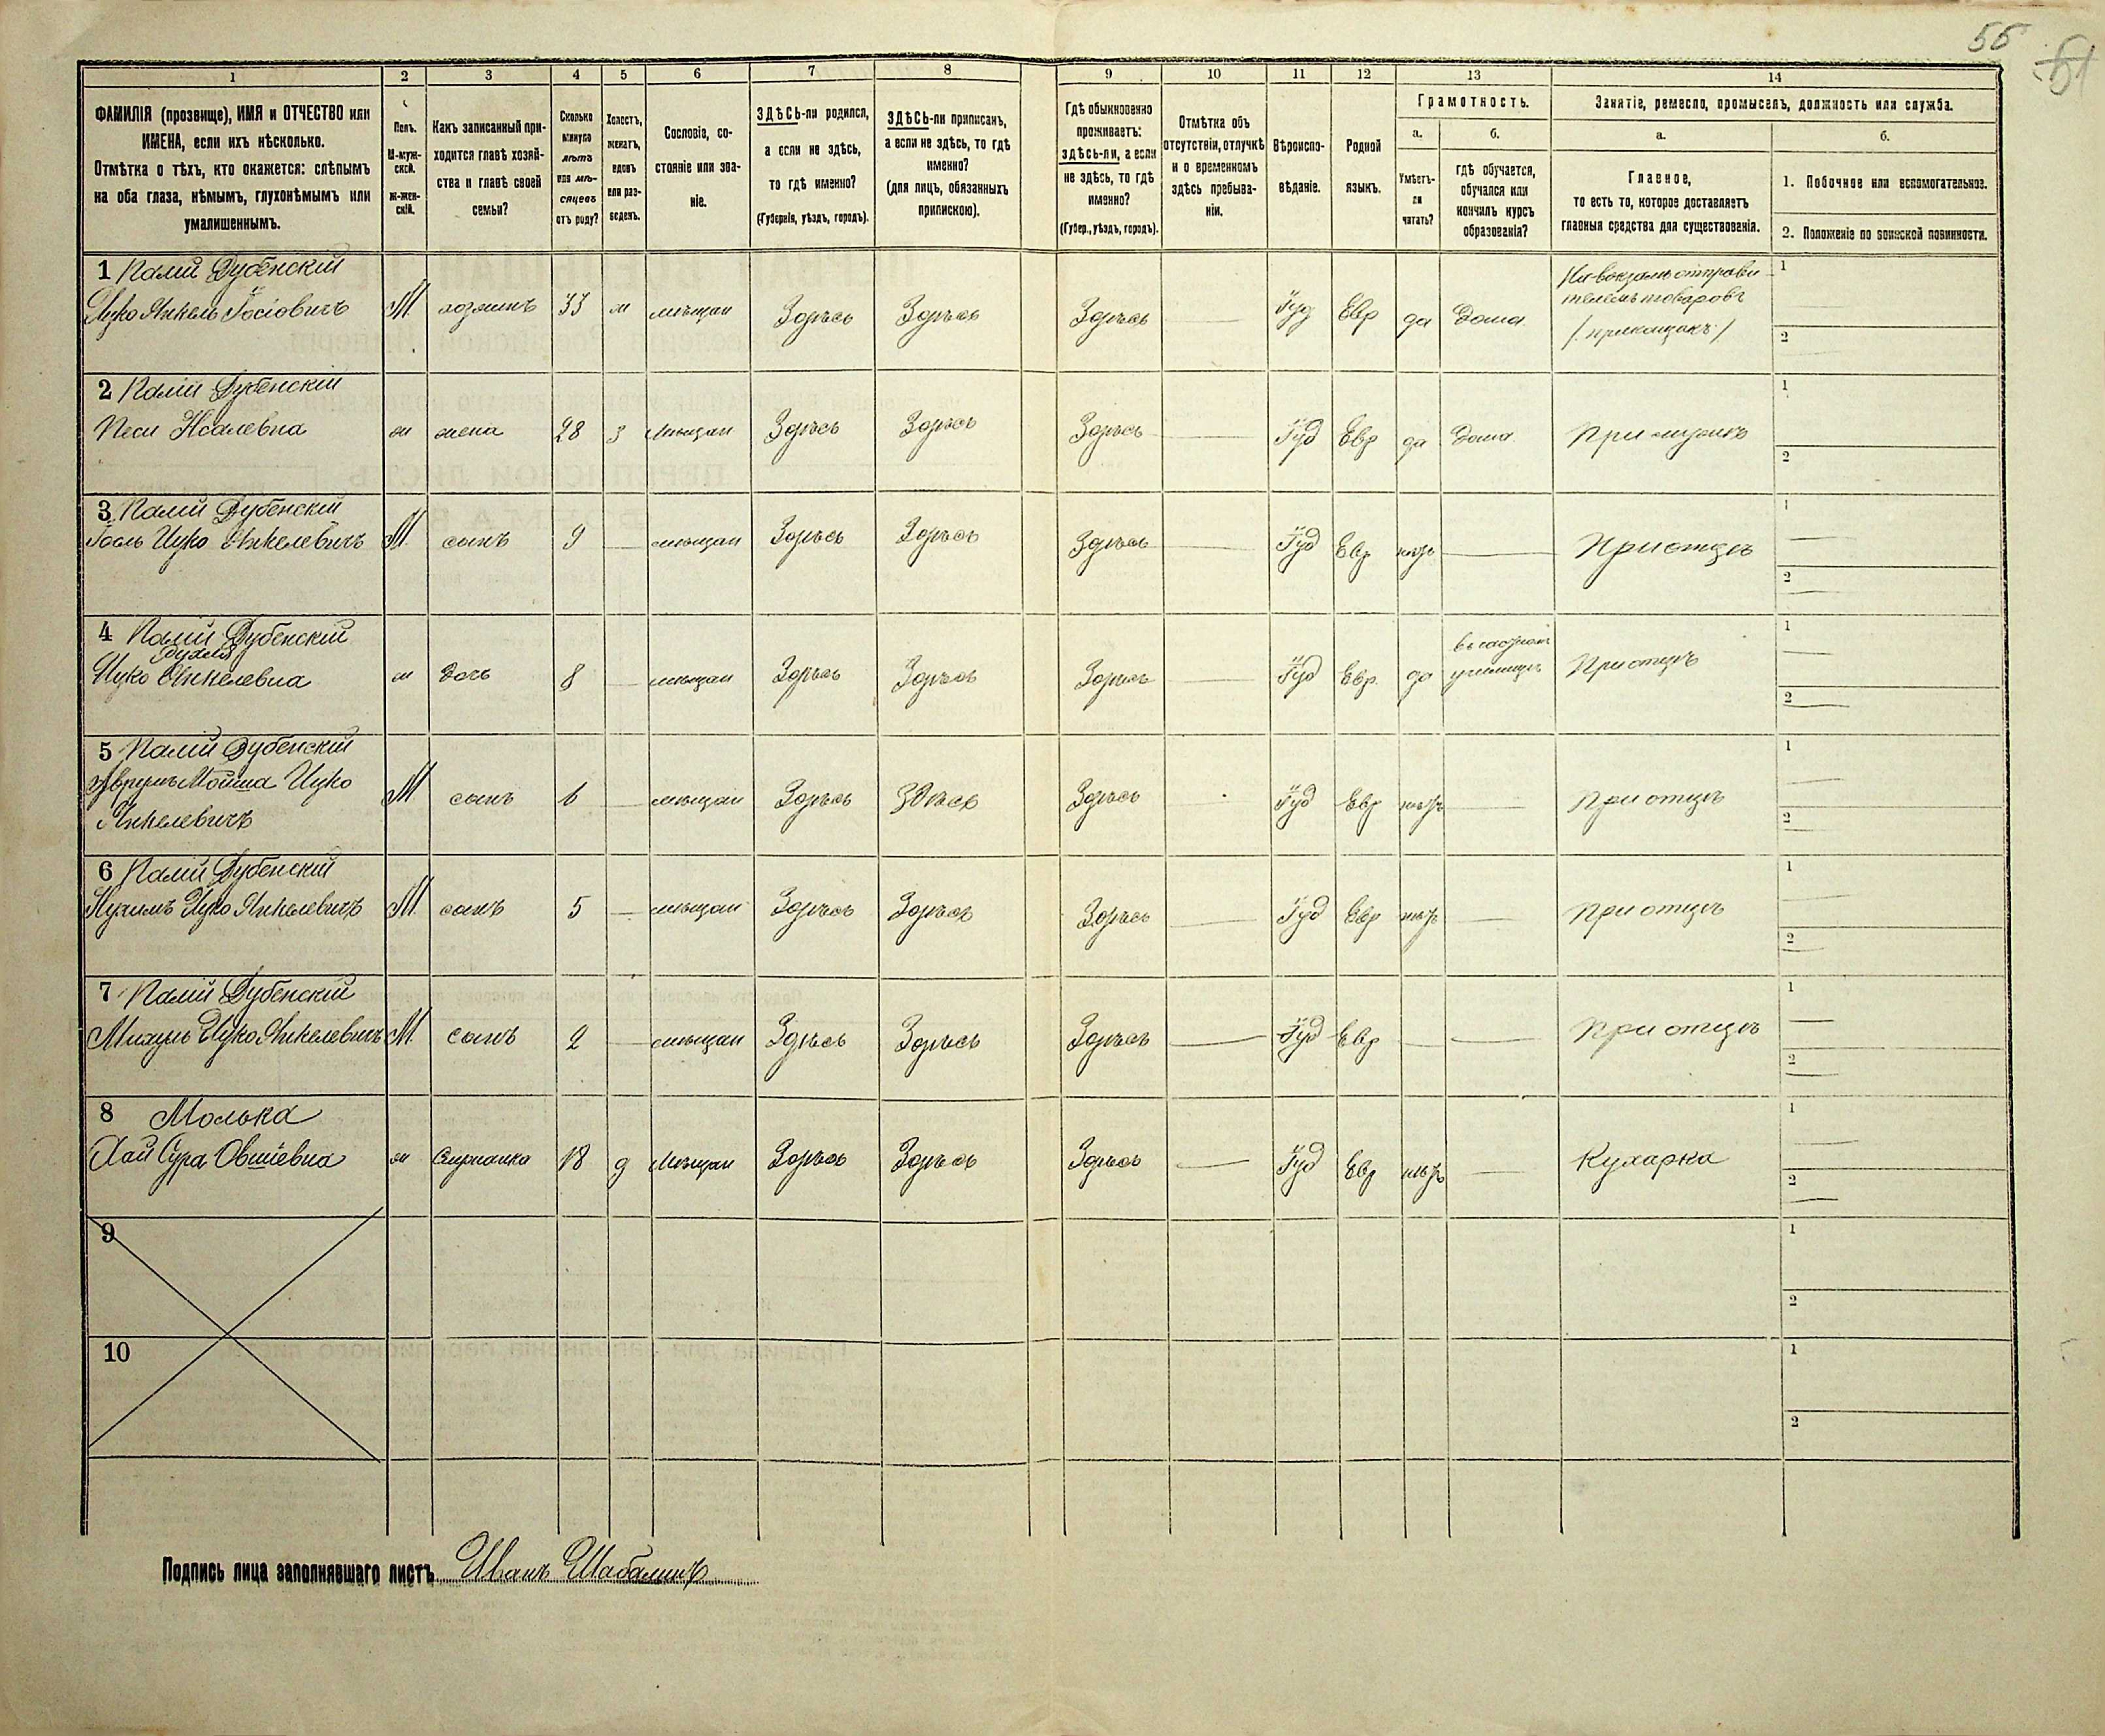 55
51
1
2
3
4
5
6
7
8
9
10
11
12
13
14
ФАМИЛІЯ (прозвище), ИМЯ и ОТЧЕСТВО или
ИМЕНА, если ихъ нѣсколько.
Отмѣтка о тѣхъ, кто окажется: слѣпымъ
на оба глаза, нѣмымъ, глухонѣмымъ или
умалишеннымъ.
Полъ.
М-муж-
ской.
Ж-жен-
скій.
Какъ записанный при-
ходится главѣ хозяй-
ства и главѣ своей
семьи?
Сколько
минуло
лѣтъ
или мѣ-
сяцевъ
отъ роду?
Холостъ,
женатъ,
вдовъ
или раз-
веденъ.
Сословіе, со-
стояніе или зва-
ніе.
ЗДѢСЬ-ли родился,
а если не здѣсь,
то гдѣ именно?
(Губернія, уѣздъ, городъ).
ЗДѢСЬ-ли приписанъ,
а если не здѣсь, то гдѣ
именно?
(для лицъ, обязанныхъ
припискою).
Гдѣ обыкновенно
проживаетъ:
здѣсь-ли, а если
не здѣсь, то гдѣ
именно?
(Губер., уѣздъ, городъ).
Отмѣтка объ
отсутствіи, отлучкѣ
и о временномъ
здѣсь пребыва-
ніи.
Вѣроиспо-
вѣданіе.
Родной
языкъ.
Грамотность.
а.
б.
Умѣетъ-
ли
читать?
гдѣ обучается,
обучался или
кончилъ курсъ
образованія?
Занятіе, ремесло, промыселъ, должность или служба.
а.
б.
Главное,
то есть то, которое доставляетъ
главныя средства для существованія.
1. Побочное или вспомогательное.
2. Положеніе по воинской повинности.
1 Палій Дубенскій
Ицко Янкель Іосіовичъ М хозяинъ 33 ж мѣщан Здѣсь Здѣсь Здѣсь Іуд Евр да Дома
На вокзалѣ отправи
телемъ товаровъ
/прикащикъ/
1
2
2 Палій Дубенскій
Песи ж жена 28 з мѣщан Здѣсь Здѣсь Здѣсь Іуд Евр да Дома При мужѣ
1
2
3 Палій Дубенскій
Іосль Ицко Янкелевичъ М сынъ 9 мѣщан Здѣсь Здѣсь Здѣсь Іуд Евр нѣтъ При отцѣ
1
2
4 Палій Дубенскій
Ицко Янкелевна ж дочь 8 мѣщан Здѣсь Здѣсь Здѣсь Іуд Евр. да училищѣ При отцѣ
1
2
5 Палій Дубенскій
Аврумъ Мойша Ицко
Янкелевичъ М сынъ 6 мѣщан Здѣсь Здѣсь Здѣсь Іуд Евр нѣтъ При отцѣ
1
2
6 Палій Дубенскій
Нухимъ Ицко Янкелевичъ М сынъ 5 мѣщан Здѣсь Здѣсь Здѣсь Іуд Евр нѣтъ При отцѣ
1
2
7 Палій Дубенскій
Михуль Ицко Янкелевичъ М сынъ 2 мѣщан Здѣсь Здѣсь Здѣсь Іуд Евр При отцѣ
1
2
8 Молька
Хай Сура Овшіевна ж Служанка 18 д мѣщан Здѣсь Здѣсь Здѣсь Іуд Евр нѣтъ Кухарка
1
2
9
1
2
10
1
2
Подпись лица заполнявшаго листъ Иванъ Шабалинъ